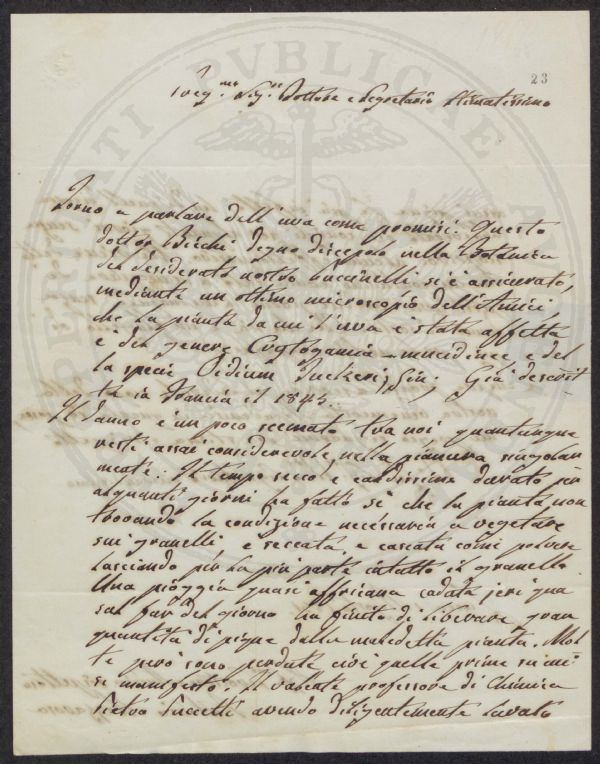 23
Preg.mo Sig.re Dottore e Segretario Stimatissimo
Torno a parlare dell'uva come promisi. Questo
dottor Bicchi degno discepolo nella Botanica
del desiderato nostro Puccinelli si è assicurato,
mediante un ottimo microscopio dell'Amici,
che la pianta da cui l'uva è stata affetta
è del genere Crytogamia mucidinee e del
la specie Oidium Tuckeri, Già descrit
ta in Francia il 1845.
Il danno è un poco scemato tra noi quantunque
resti assai considerevole, nella pianura singolar
mente. Il tempo secco e caldissimo durato per
alquanti giorni ha fatto sì che la pianta non
trovando la condizione necessaria a vegetare
sui granelli è seccata, e cascata come polvere
lasciando per la più parte intatto il granello.
Una pioggia quasi affricana caduta jeri qua
sul far del giorno ha finito di liberare gran
quantità di pigne dalla maledetta pianta. Mol
te però sono perdute cioè quelle prime su cui
si manifestò. Il valente professore di Chimica
Pietro Puccetti avendo diligentemente lavato
PERITATI PUBLICAE